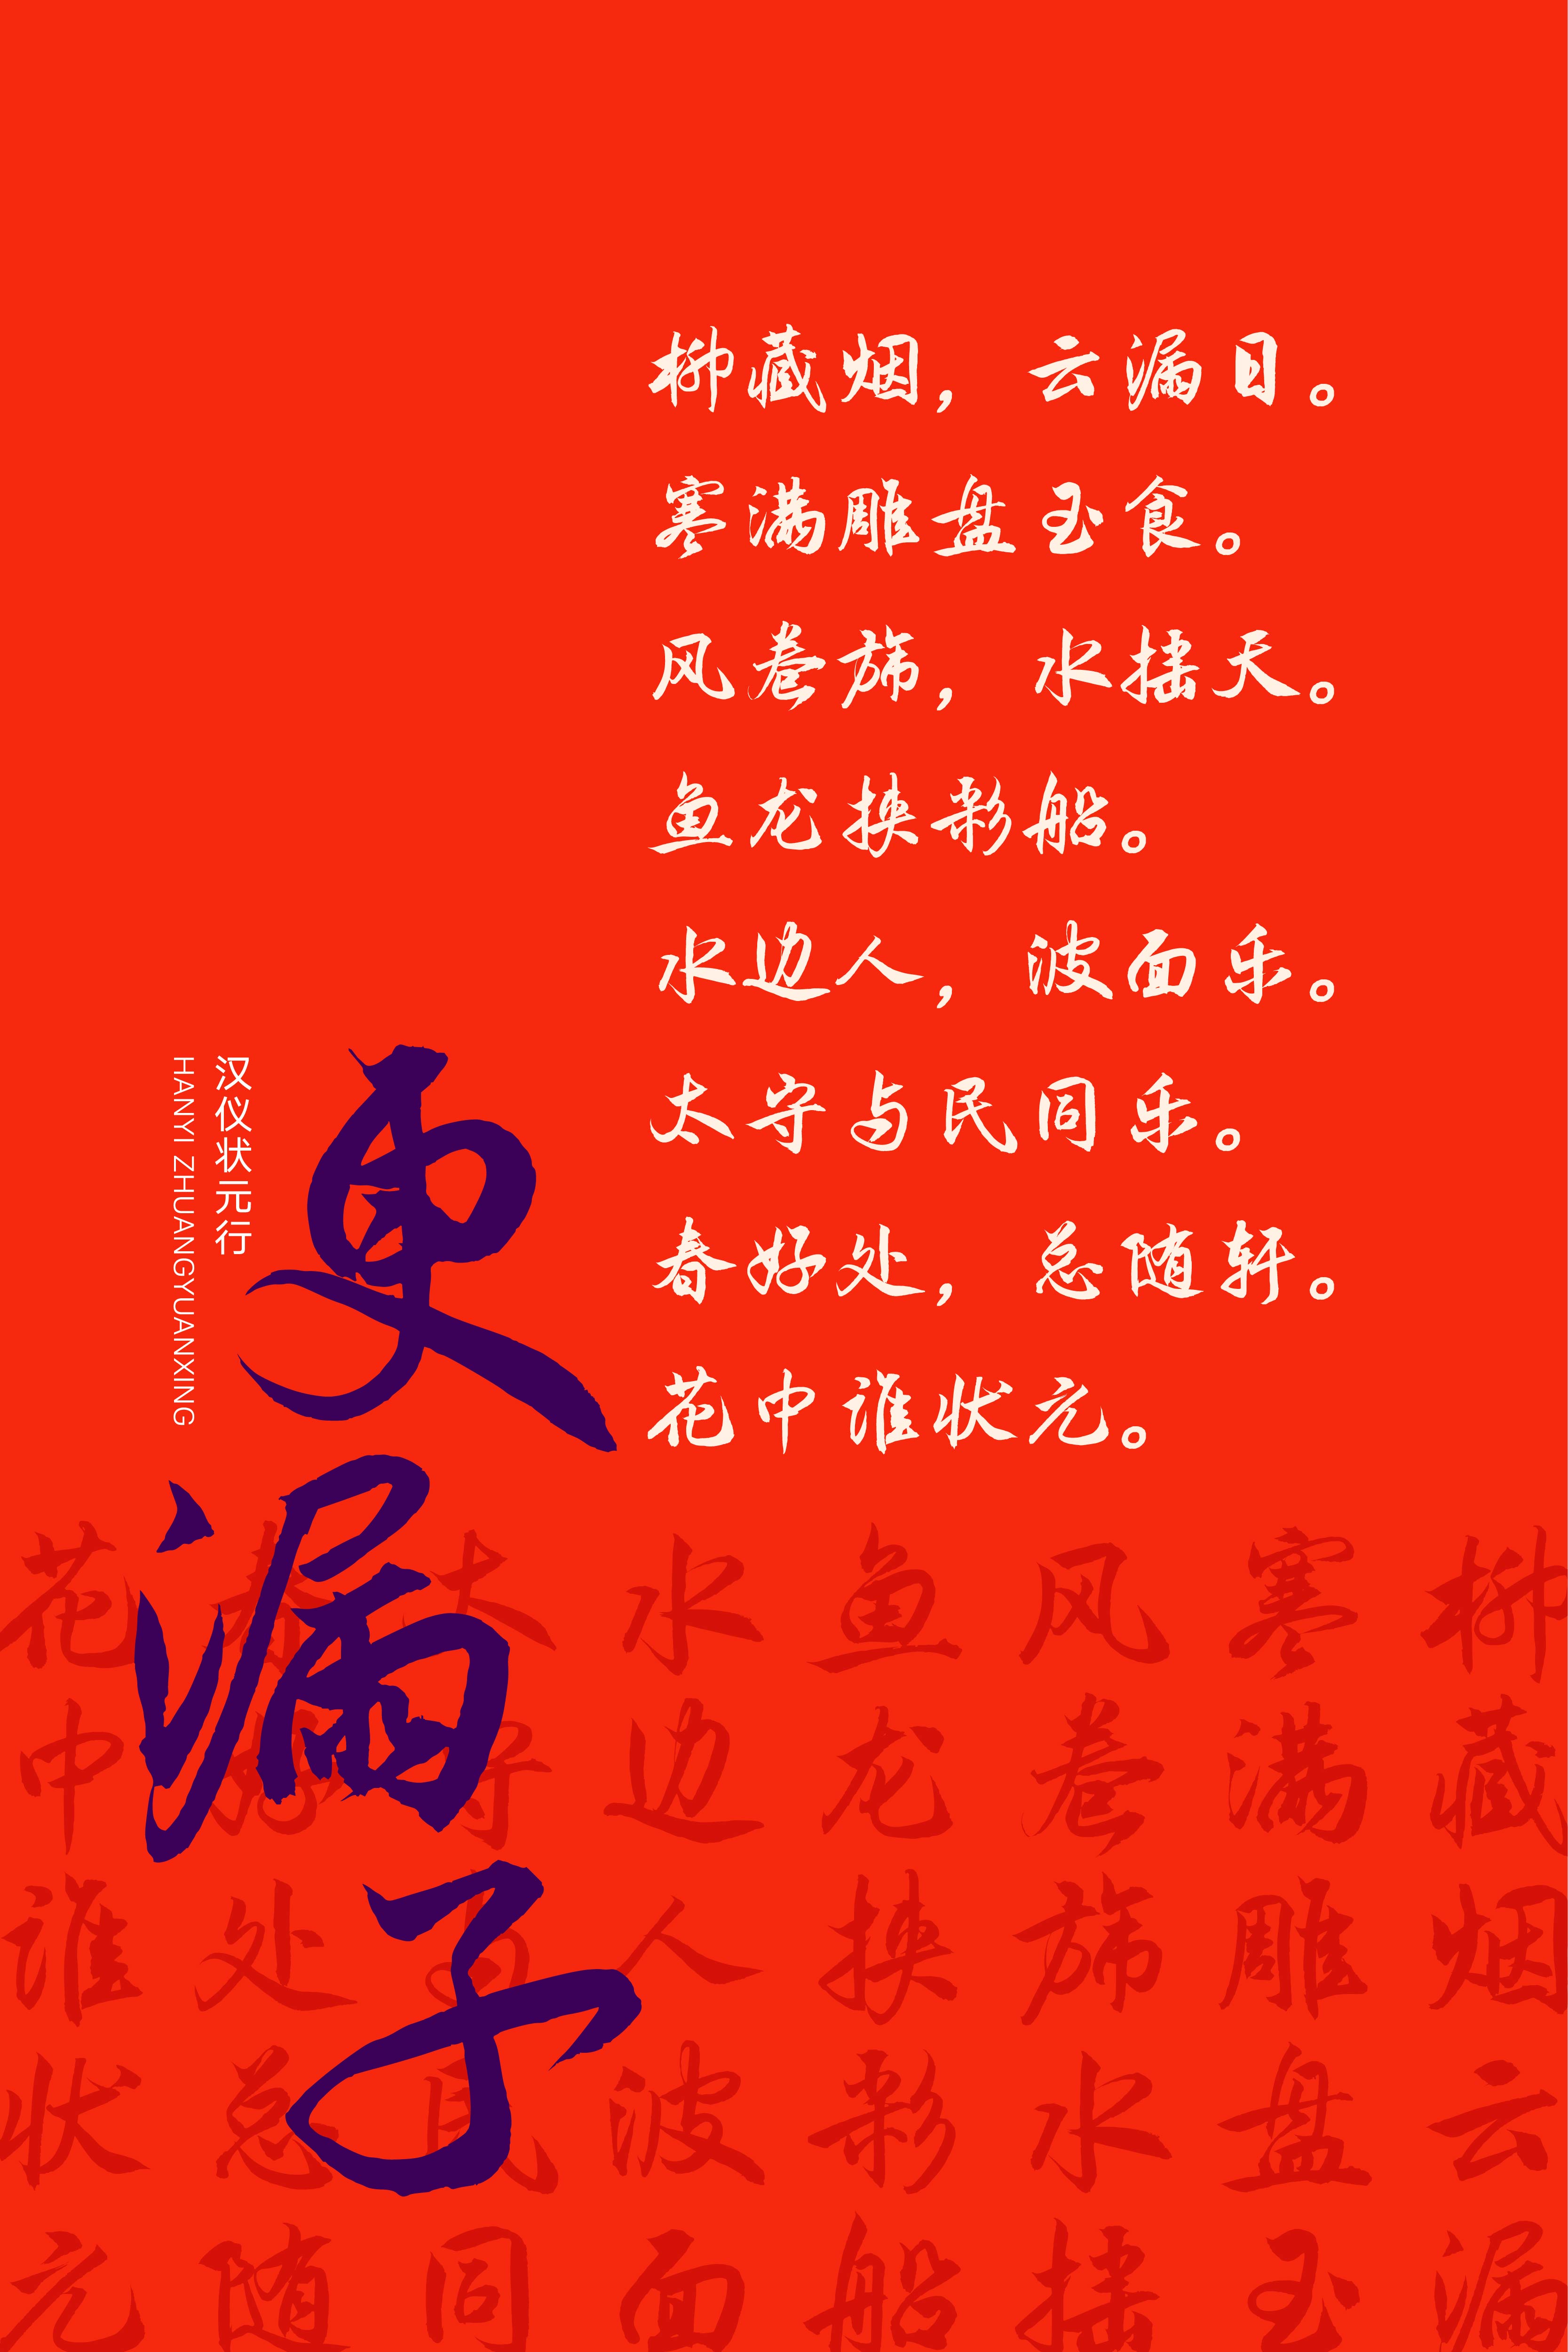 柳藏烟， 云漏日。
寒满雕盘玉食。
风卷旆， 水摇天。
鱼龙挟彩船。
水边人， 波面乐。
太守与民同乐。
春好处， 总随轩。
花中谁状元。
更漏子
汉仪状元行
HANYI ZHUANGYUANXING
柳藏烟云漏
寒满雕盘玉
风卷旆水摇
鱼龙挟彩船
水边人波面
太守与民同
春好处总随
花中谁状元